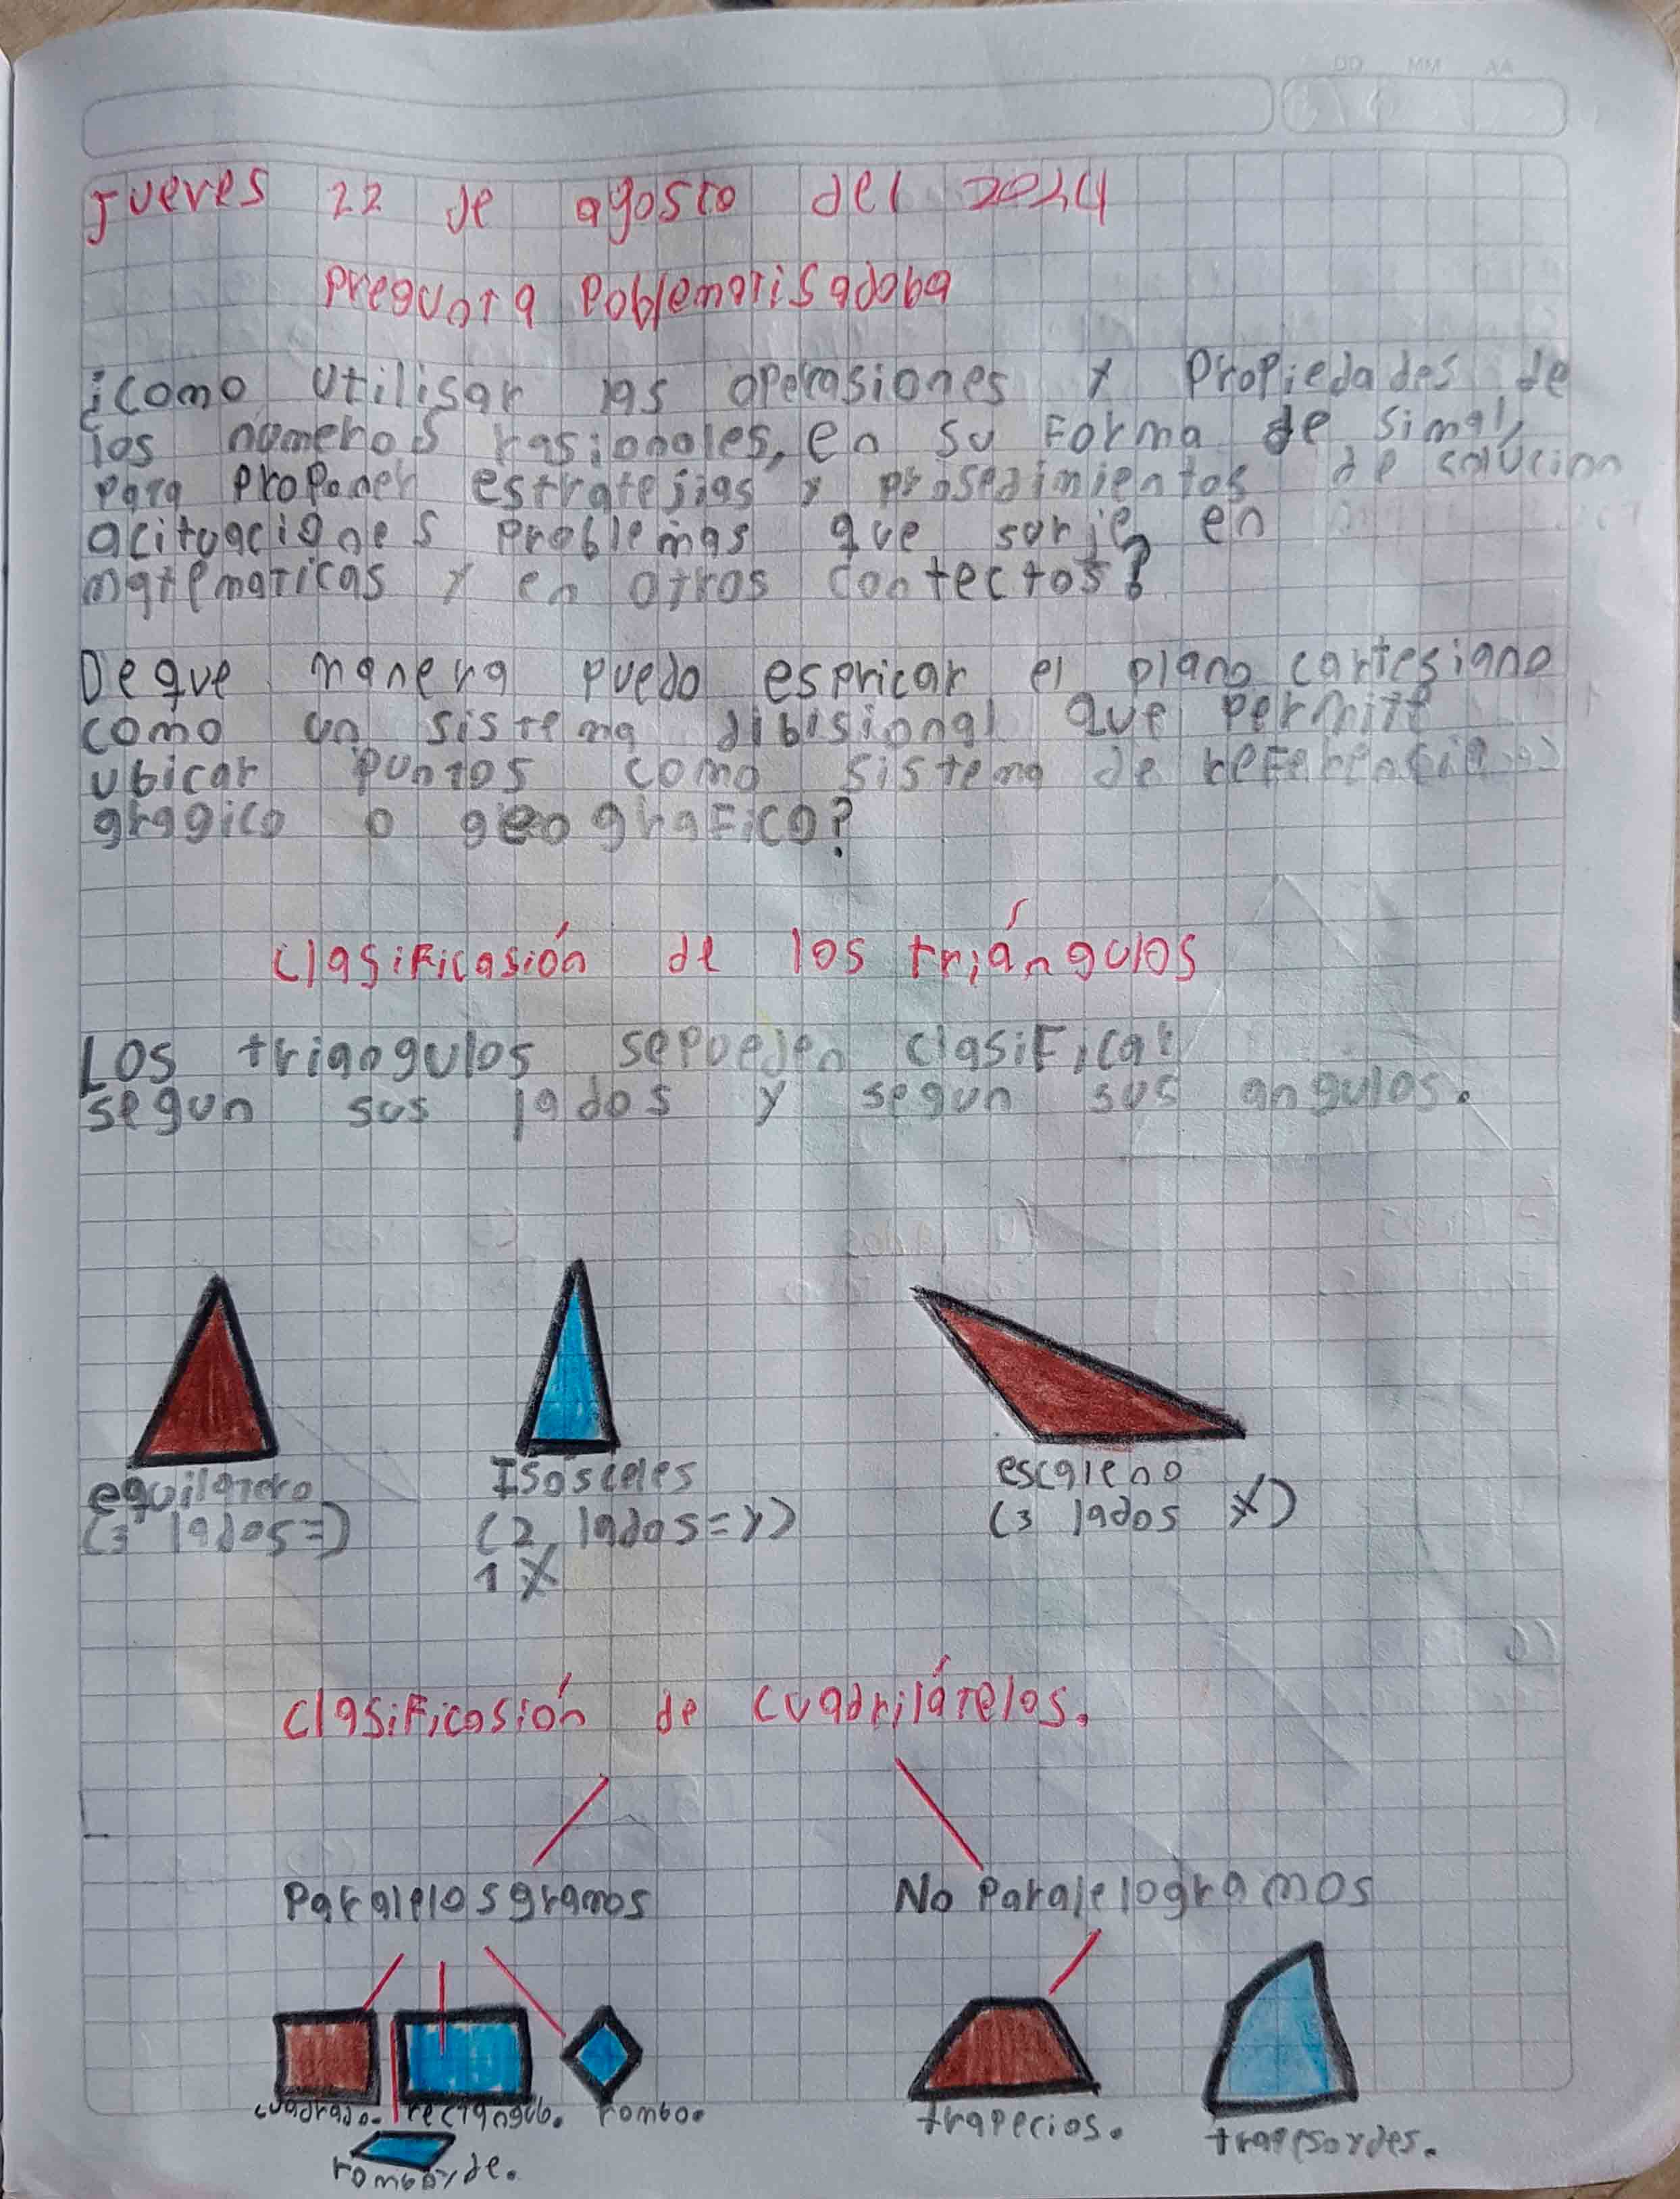 Jueves 22 de agosto del 2024
Pregunta Poblematisadoba
¿como utilisar las operasiones y Propiedades de
los nomeros rasionales, en su Forma de simal,
para proponer estratejias y prosedimientos de solucion
acituaciones problemas que sorjen en
matematicas y en otros contectos?
De que manera puedo espricar el plano cartesiano
como un sistema dibisional que permite
ubicar puntos como sistema de
gragico o geografico?
clasificasión de los triángulos
Los triangulos sepueden clasificar
segun sus lados y segun sus angulos.
equilatero Isósceles escaleno
(3 lados =) (2 lados = y) (3 lados ≠)
1 ≠
clasificasión de cuadriláteros.
Paralelosgramos No Paralelogramos
cuadrado. rectangulo. rombo. trapecios. trapesoydes.
romboyde.